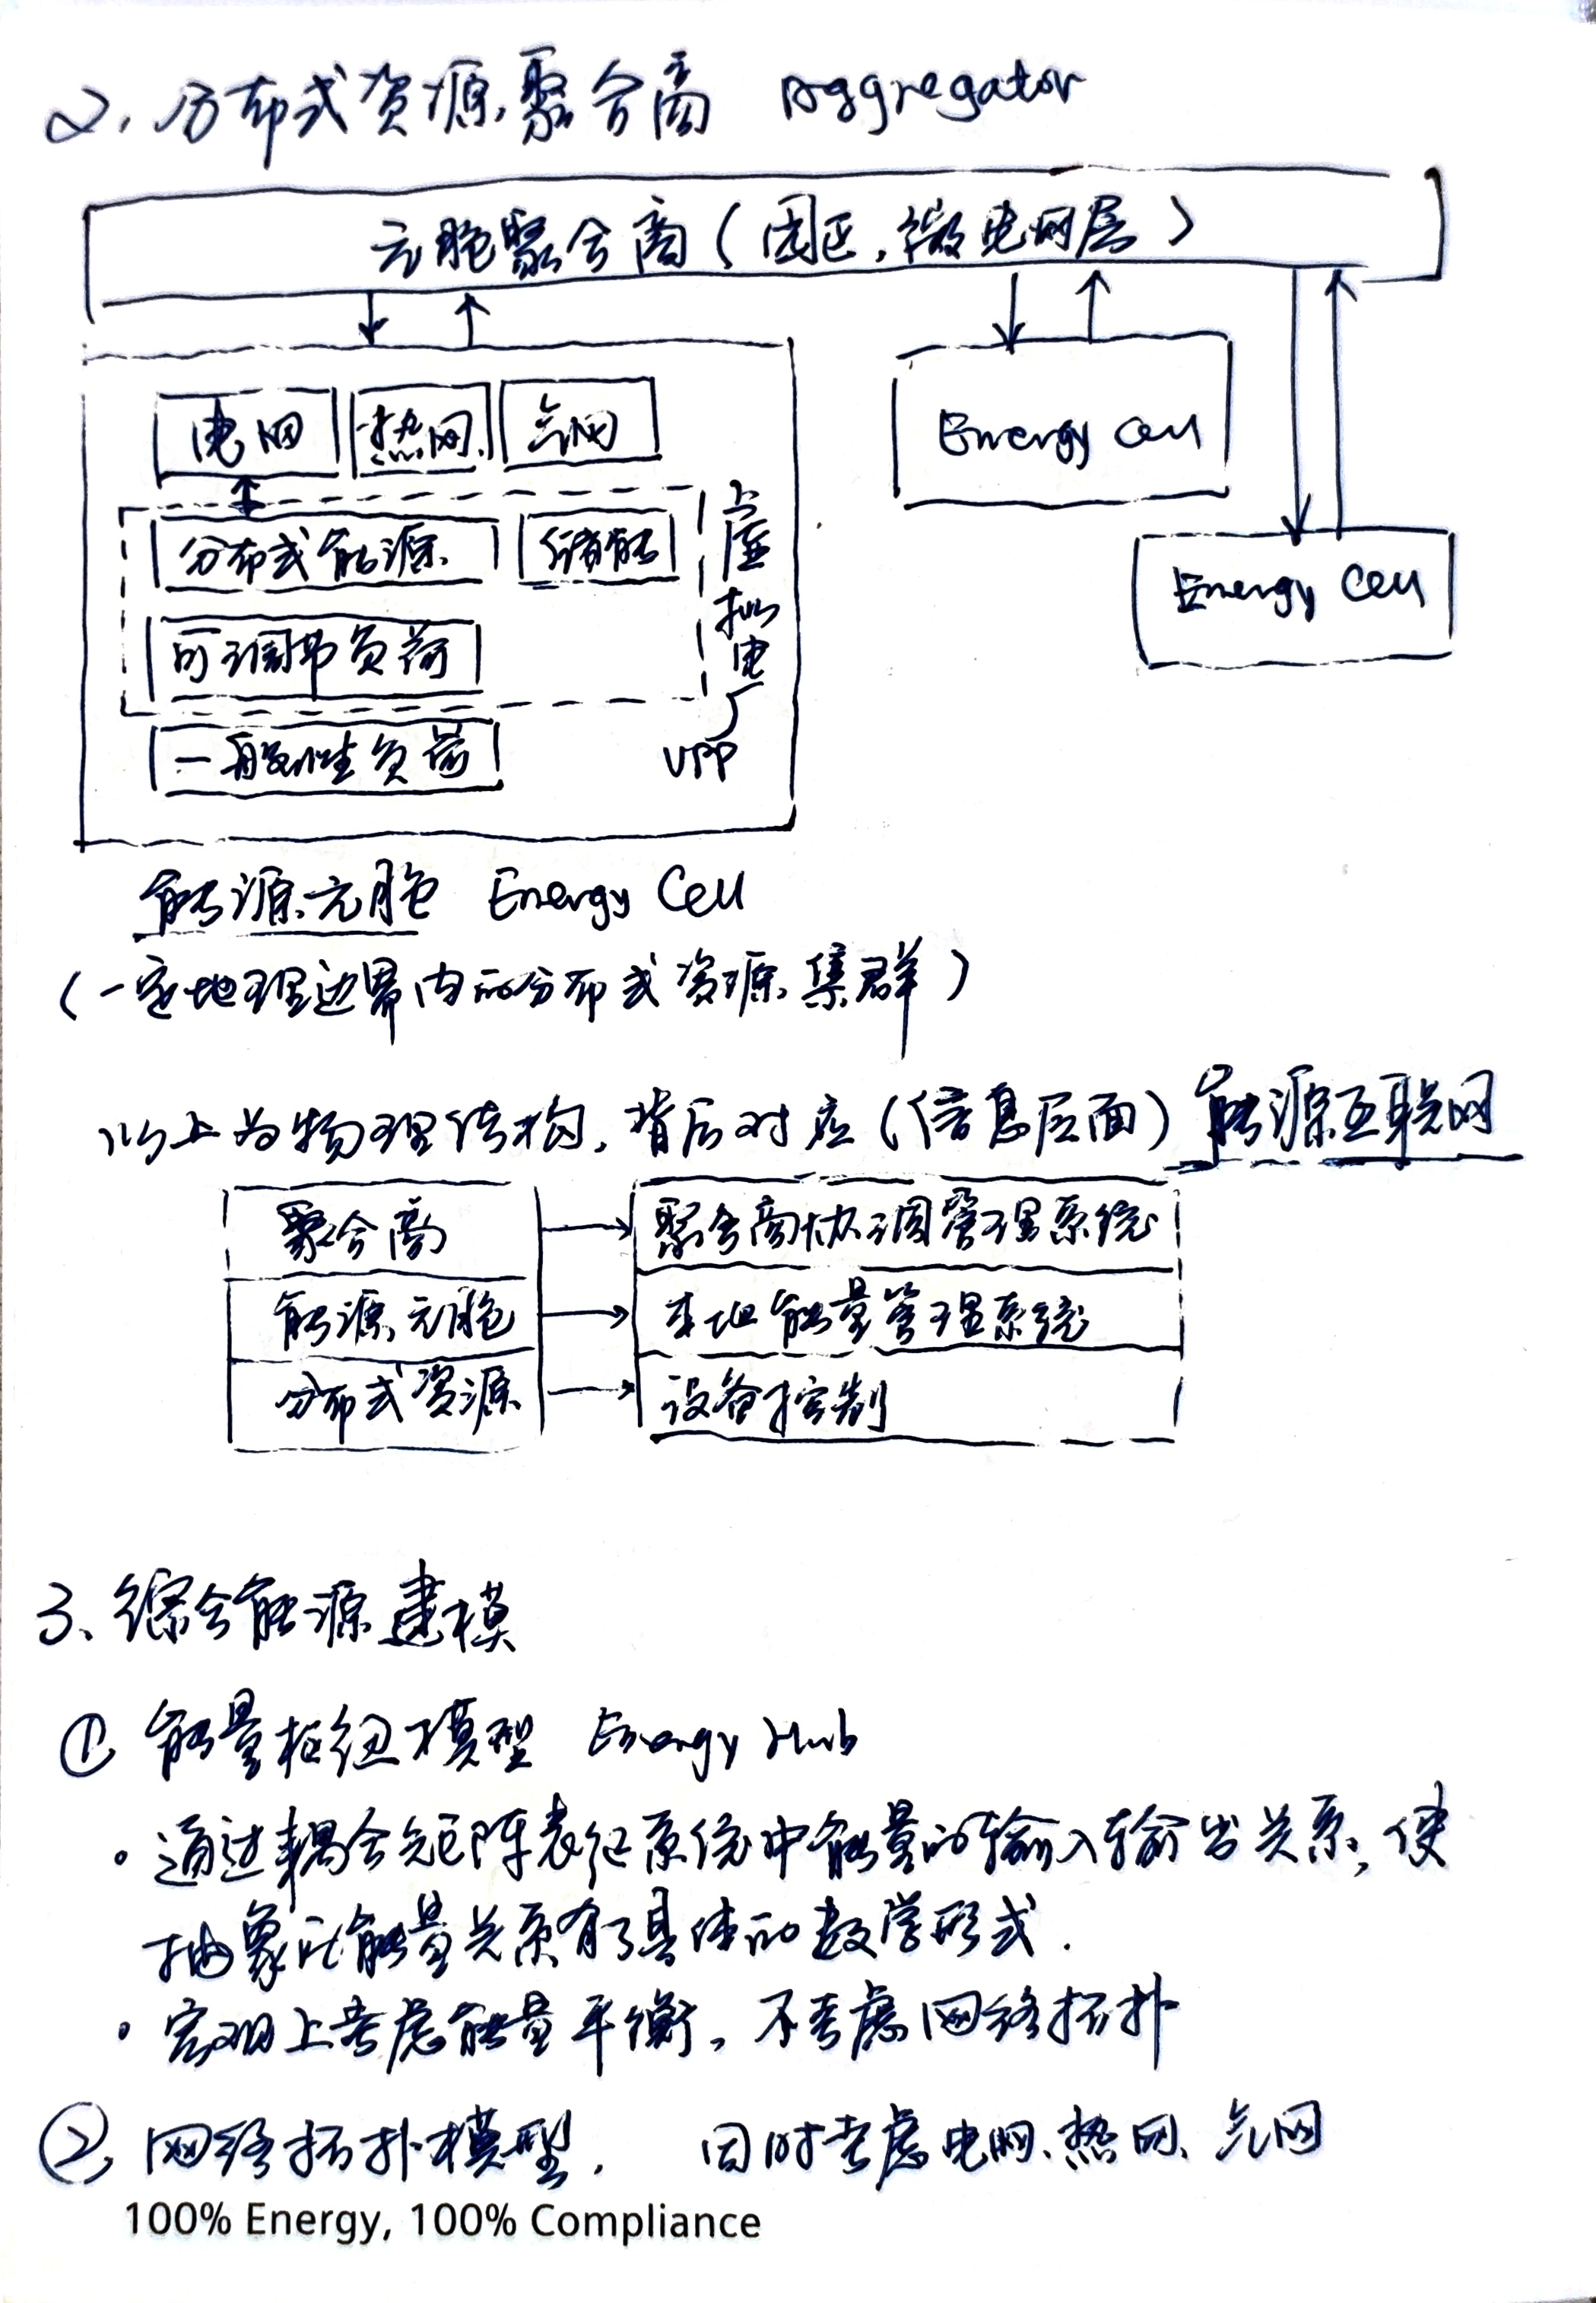 2. 分布式资源聚合商 Aggregator
元胞聚合商(园区,微电网层)
电网 热网 气网
分布式能源 储能
可调节负荷
一般性负荷
虚拟电厂
VPP
Energy Cell
Energy Cell
能源元胞 Energy Cell
(一定地理边界内的分布式资源集群)
以上为物理结构,背后对应(信息层面)能源互联网
聚合商 聚合商协调管理系统
能源元胞 本地能量管理系统
分布式资源 设备控制
3、综合能源建模
① 能量枢纽模型 Energy Hub
· 通过耦合矩阵表征系统中能量的输入输出关系,使
抽象化能量关系有了具体的数学形式.
· 宏观上考虑能量平衡,不考虑网络拓扑
② 网络拓扑模型. 同时考虑电网、热网、气网
100% Energy, 100% Compliance